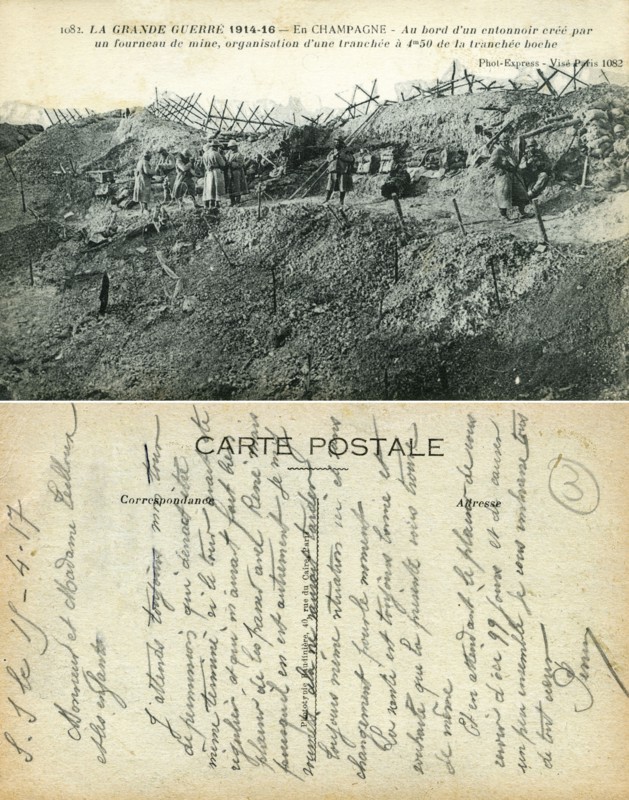 1082. LA GRANDE GUERRE 1914-16 — En CHAMPAGNE - Au bord d'un entonnoir créé par
un fourneau de mine, organisation d'une tranchée à 4m50 de la tranchée boche
Phot-Express - Visé Paris 1082
CARTE POSTALE
Correspondance
Adresse
Phototypie Baudinière, 40, rue du Caire, Paris
le 15-4-17
Monsieur et Madame
et les enfants
J'attends toujours mon tour
de permission qui devait être
même terminé si le tour avait été
régulier et qui m'aurait fait bien
plaisir de les passer avec René mais
puisqu'il en est autrement je m'y
soumets cela ne saurait tarder
toujours même situation ici et sans
changement pour le moment
La santé est toujours bonne et
souhaite que la présente vous trouve
de même
Et en attendant le plaisir de vous
revoir d'ici jours et de causer
un peu ensemble je vous embrasse tous
de tout cœur